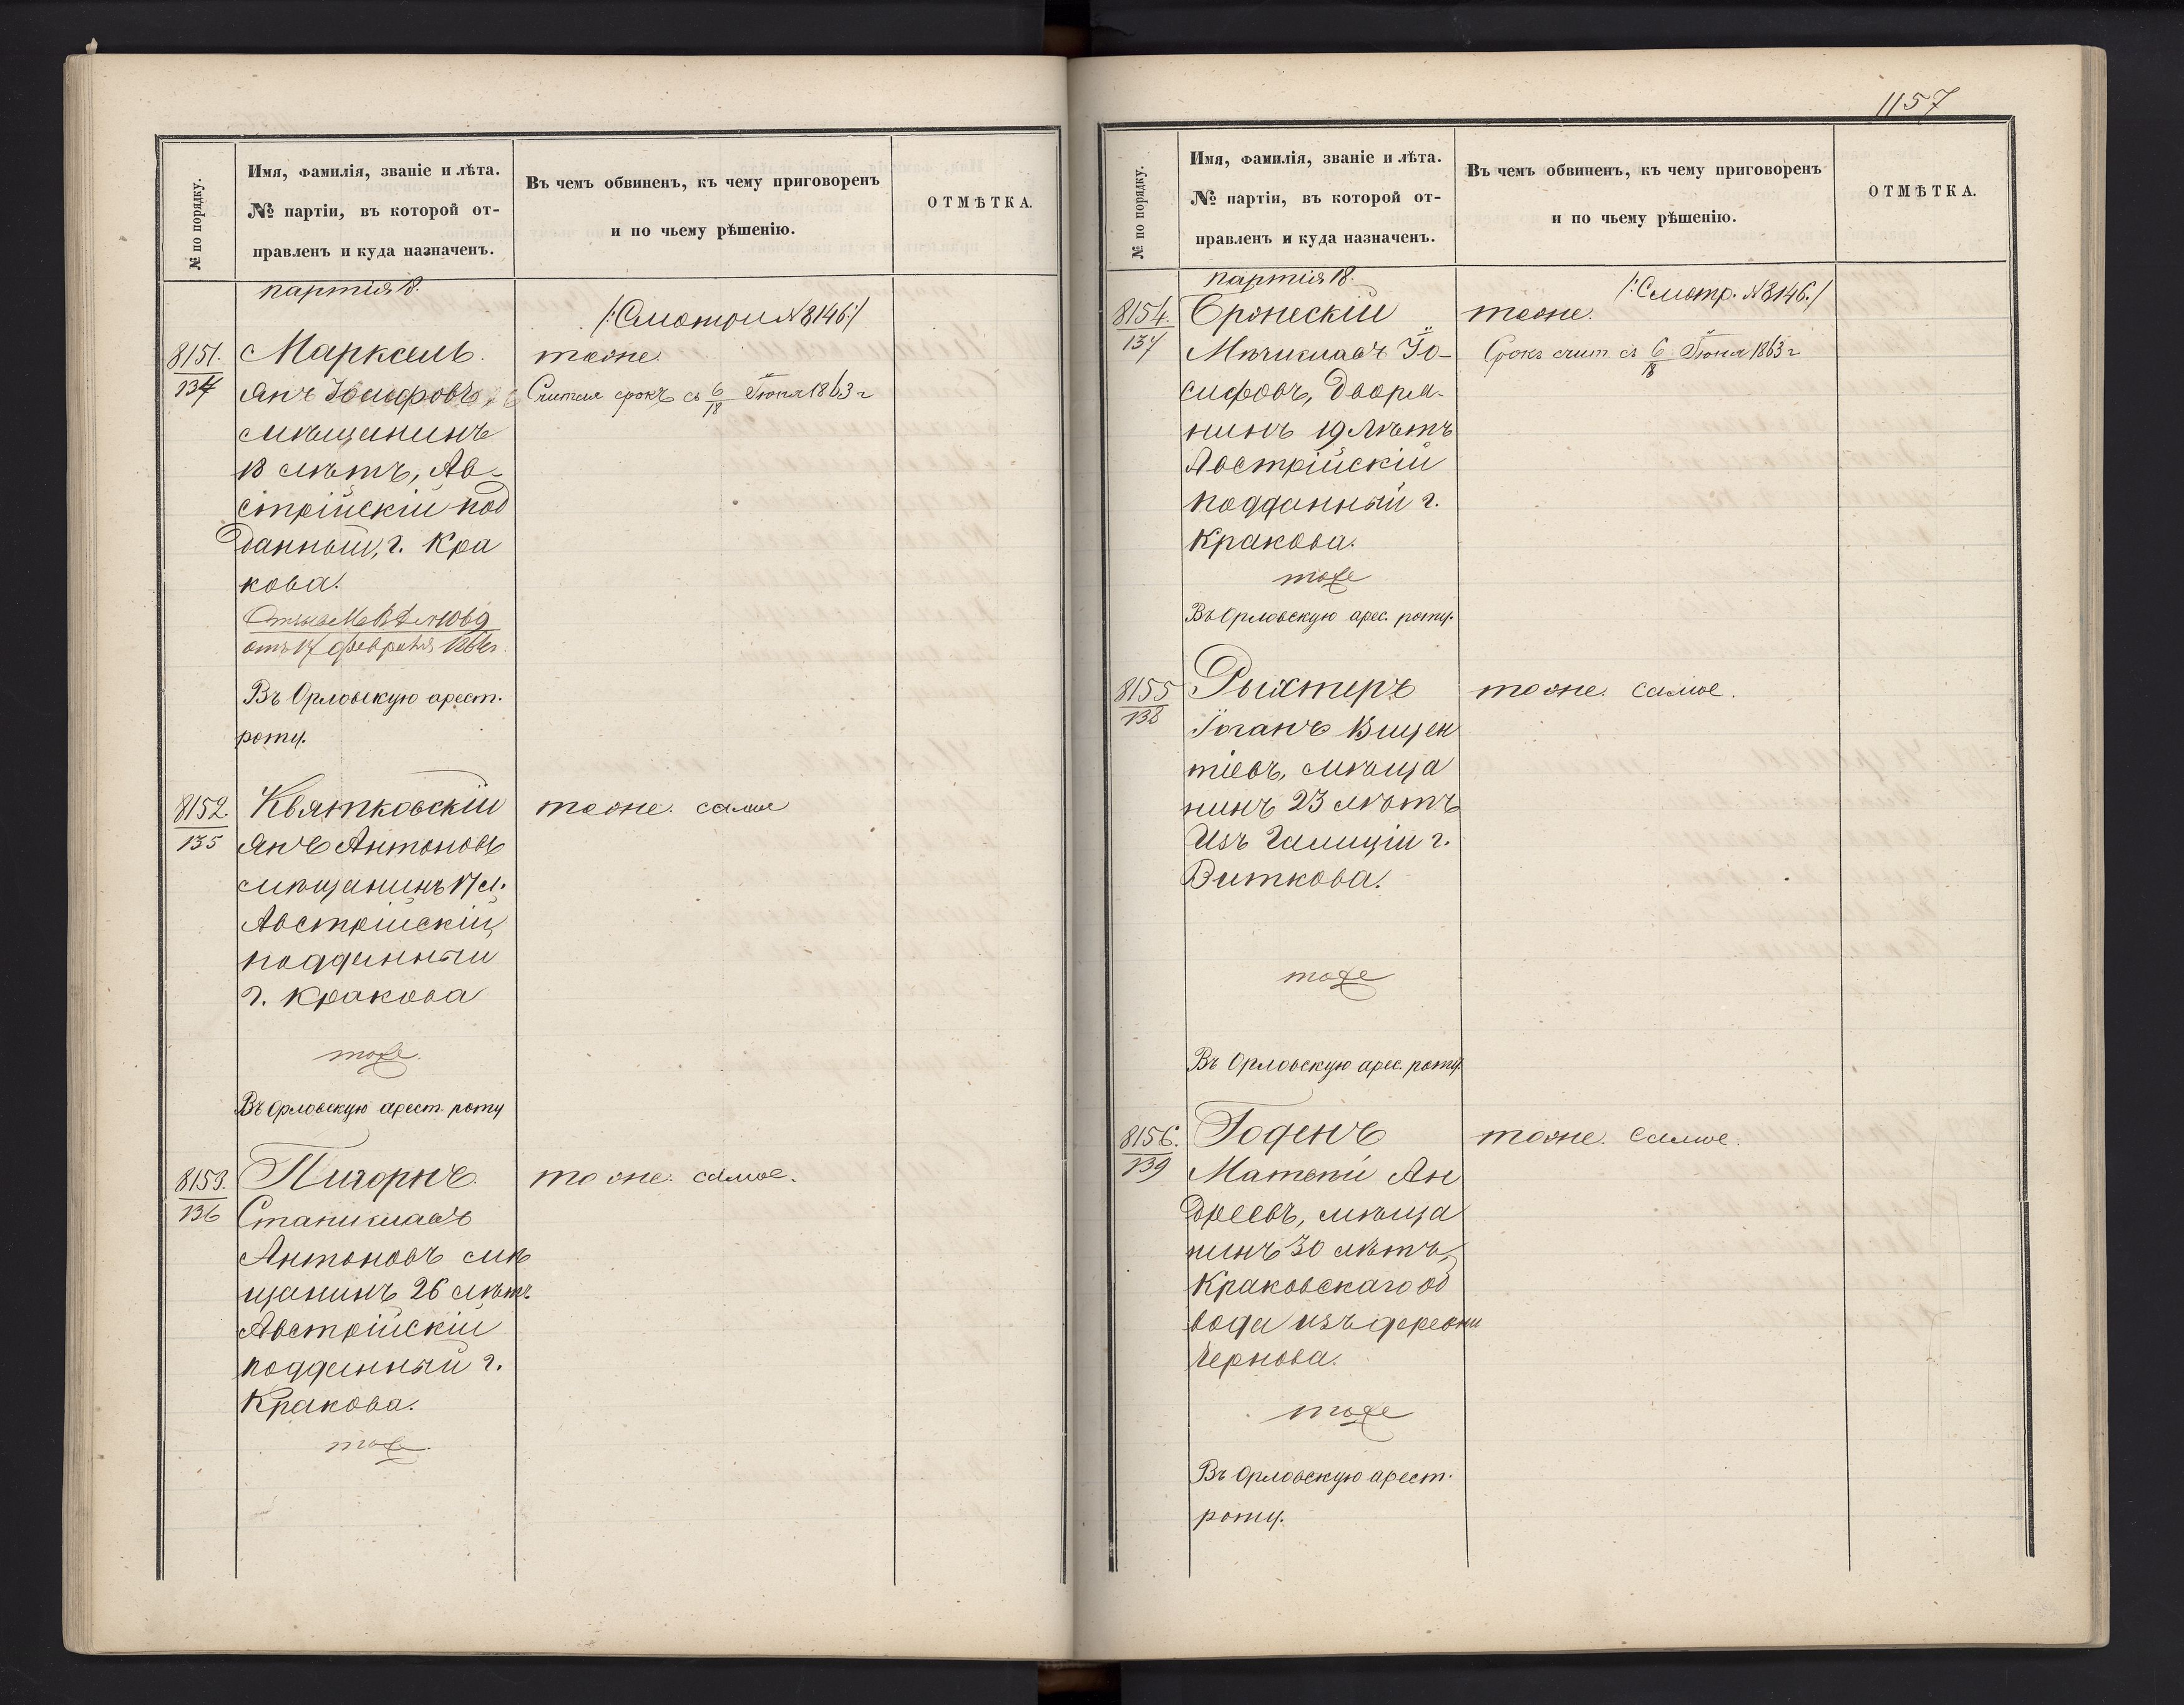 № по порядку.
Имя, фамилія, званіе и лѣта.
№ партіи, въ которой от-
правленъ и куда назначенъ.
Въ чемъ обвиненъ, къ чему приговоренъ
и по чьему рѣшенію.
ОТМѢТКА.
партія 18.
/:Смотри № 8146:/
8151.
134
Марксель.
Янъ Іосифовъ,
мѣщанинъ
18 лѣтъ, Ав-
стрійскій под
данный, г. Кра
кова.
от 17 февраля 1864 г.
Въ Орловскую арест.
роту.
тоже.
Считая срокъ съ 6/18 Іюня 1863 г
8152
135
Квятковскій
Янъ Антоновъ
мѣщанинъ 17 л.
Австрійскій
подданный
г. Кракова
тоже.
Въ Орловскую арест. роту
тоже. самое
8153.
136
Пигорнъ.
Станиславъ
Антоновъ мѣ
щанинъ 26 лѣтъ.
Австрійскій
подданный г.
Кракова.
тоже.
тоже. самое.
1157
№ по порядку.
Имя, фамилія, званіе и лѣта.
№ партіи, въ которой от-
правленъ и куда назначенъ.
Въ чемъ обвиненъ, къ чему приговоренъ
и по чьему рѣшенію.
ОТМѢТКА.
партія 18.
/:Смотр. № 8146:/
8154.
137
Бронескій
Мѣчиславъ Іо-
сифовъ, Дворя-
нинъ 19 лѣтъ
Австрійскій
подданный г.
Кракова.
тоже
Въ Орловскую арес. роту.
тоже.
Срокъ счит. съ 6/18 Іюня 1863 г
8155
138
Рыхтеръ
Іоганъ Вицен
тіевъ, мѣща
нинъ 23 лѣтъ
Изъ Галиціи г.
Виткова.
тоже
Въ Орловскую арес. роту.
тоже. самое.
8156.
139
Годенъ
Матвѣй Ан
дреевъ, мѣща
нинъ 30 лѣтъ,
Краковскаго об
вода изъ деревни
Чернова.
тоже
Въ Орловскую арест.
роту.
тоже. самое.